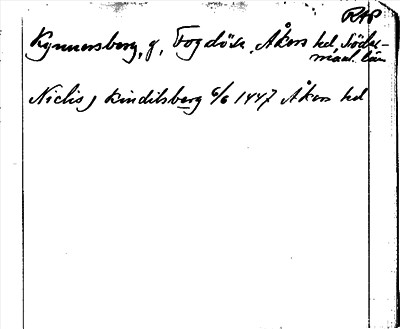 RAP
Kynnersberg, g, Fogdöse. Åkers hd, Söder-
manl. län
Niclis j Kindilsberg 6/6 1447 Åkers hd